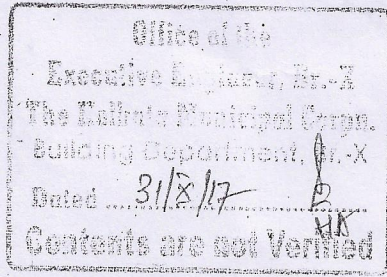 Office of the
Executive Engineer, Br.-X
The Kolkata Municipal Corpn.
Building Department, Br.-X
Dated 31/X/17
Contents are not Verified